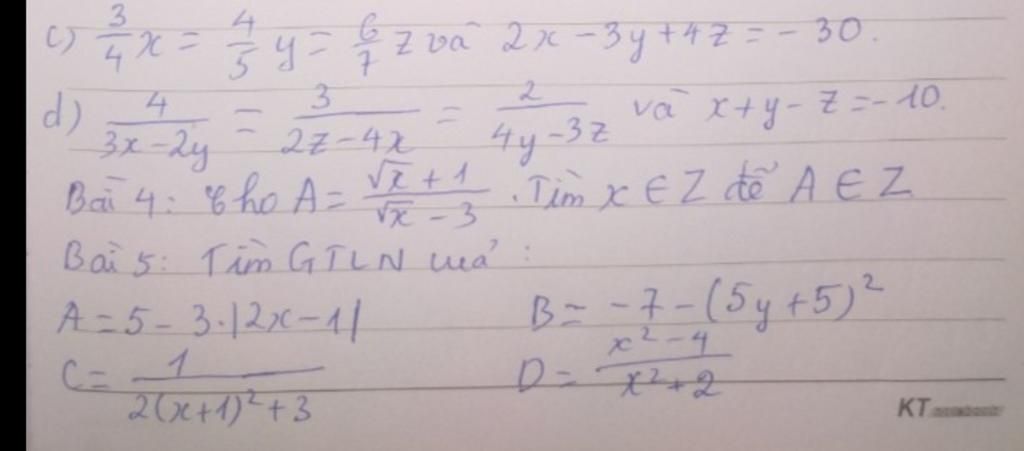 c) 3/4 x = 4/5 y = 6/7 z và 2x - 3y + 4z = - 30.
d) 4/(3x - 2y) = 3/(2z - 4x) = 2/(4y - 3z) và x + y - z = - 10.
Bài 4: Cho A = (√x + 1)/(√x - 3) . Tìm x ∈ Z để A ∈ Z
Bài 5: Tìm GTLN của :
A = 5 - 3.|2x - 1| B = - 7 - (5y + 5)²
C = 1/(2(x+1)² + 3) D = (x² - 4)/(x² + 2)
KT